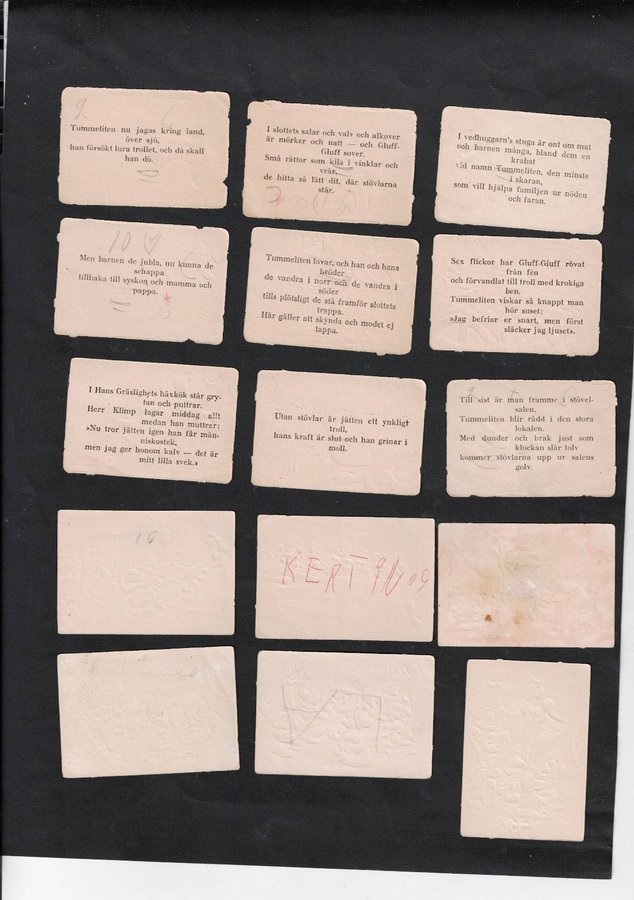 9
Tummeliten nu jagas kring land,
över sjö,
han försökt lura trollet, och då skall
han dö.
I slottets salar och valv och alkover
är mörker och natt — och Gluff-
Gluff sover.
Små råttor som kila i vinklar och
vrår,
de hitta så lätt dit, där stövlarna
står.
I vedhuggarn's stuga är ont om mat
och barnen många, bland dem en
krabat
vid namn Tummeliten, den minste
i skaran,
som vill hjälpa familjen ur nöden
och faran.
10
Men barnen de jubla, nu kunna de
schappa
tillbaka till syskon och mamma och
pappa.
Tummeliten lovar, och han och hans
bröder
de vandra i norr och de vandra i
söder
tills plötsligt de stå framför slottets
trappa.
Här gäller att skynda och modet ej
tappa.
Sex flickor har Gluff-Gluff rövat
från fén
och förvandlat till troll med krokiga
ben.
Tummeliten viskar så knappt man
hör suset:
»Jag befriar er snart, men först
släcker jag ljuset».
I Hans Gräslighets häxkök står gry-
tan och puttrar.
Herr Klimp lagar middag allt
medan han muttrar:
»Nu tror jätten igen han får män-
niskostek,
men jag ger honom kalv — det är
mitt lilla svek.»
Utan stövlar är jätten ett ynkligt
troll,
hans kraft är slut och han grinar i
moll.
Till sist är man framme i stövel-
salen.
Tummeliten blir rädd i den stora
lokalen.
Med dunder och brak just som
klockan slår tolv
kommer stövlarna upp ur salens
golv.
16
KERT